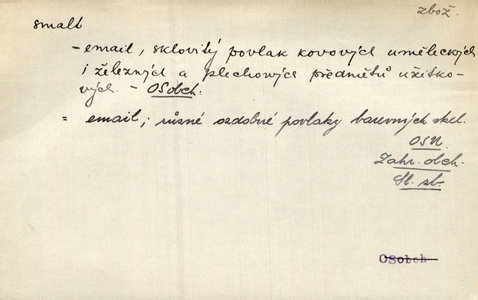 zbož.
smalt
- email, sklovitý povlak kovových uměleckých
i železných a plechových předmětů užitko-
vých. - OSobch.
= email; různé ozdobné povlaky barevných skel.
OSN.
Zahr. obch.
Sl. sb.
OSobch